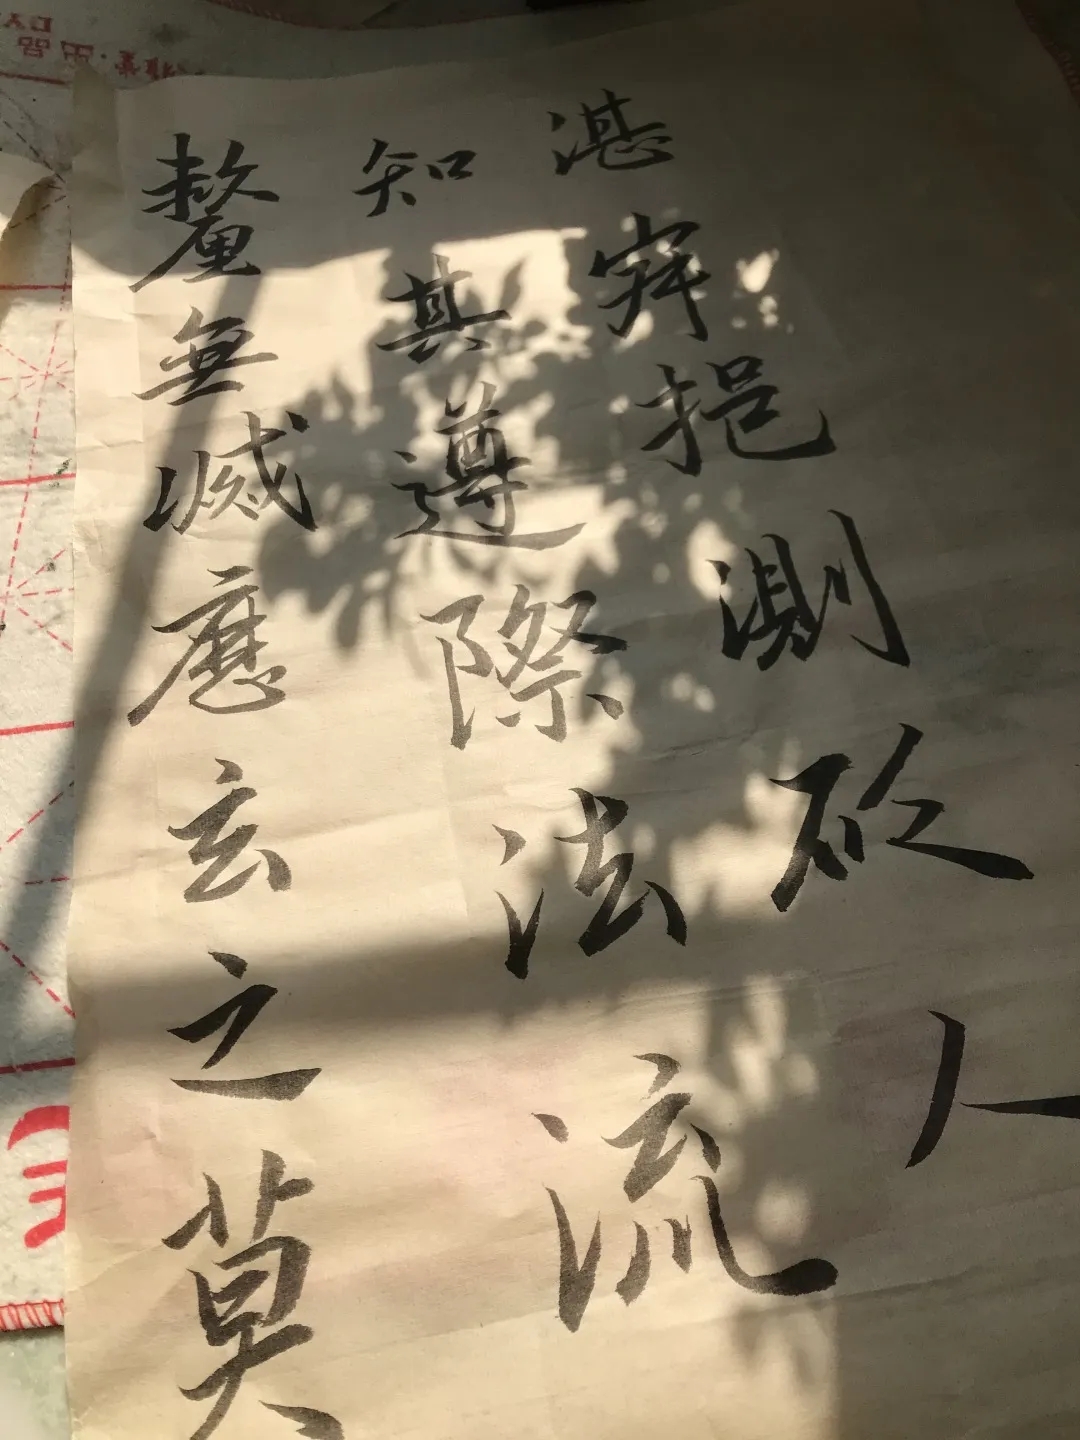 湛寂挹測人
知其遵際法流
釐無滅應玄之莫